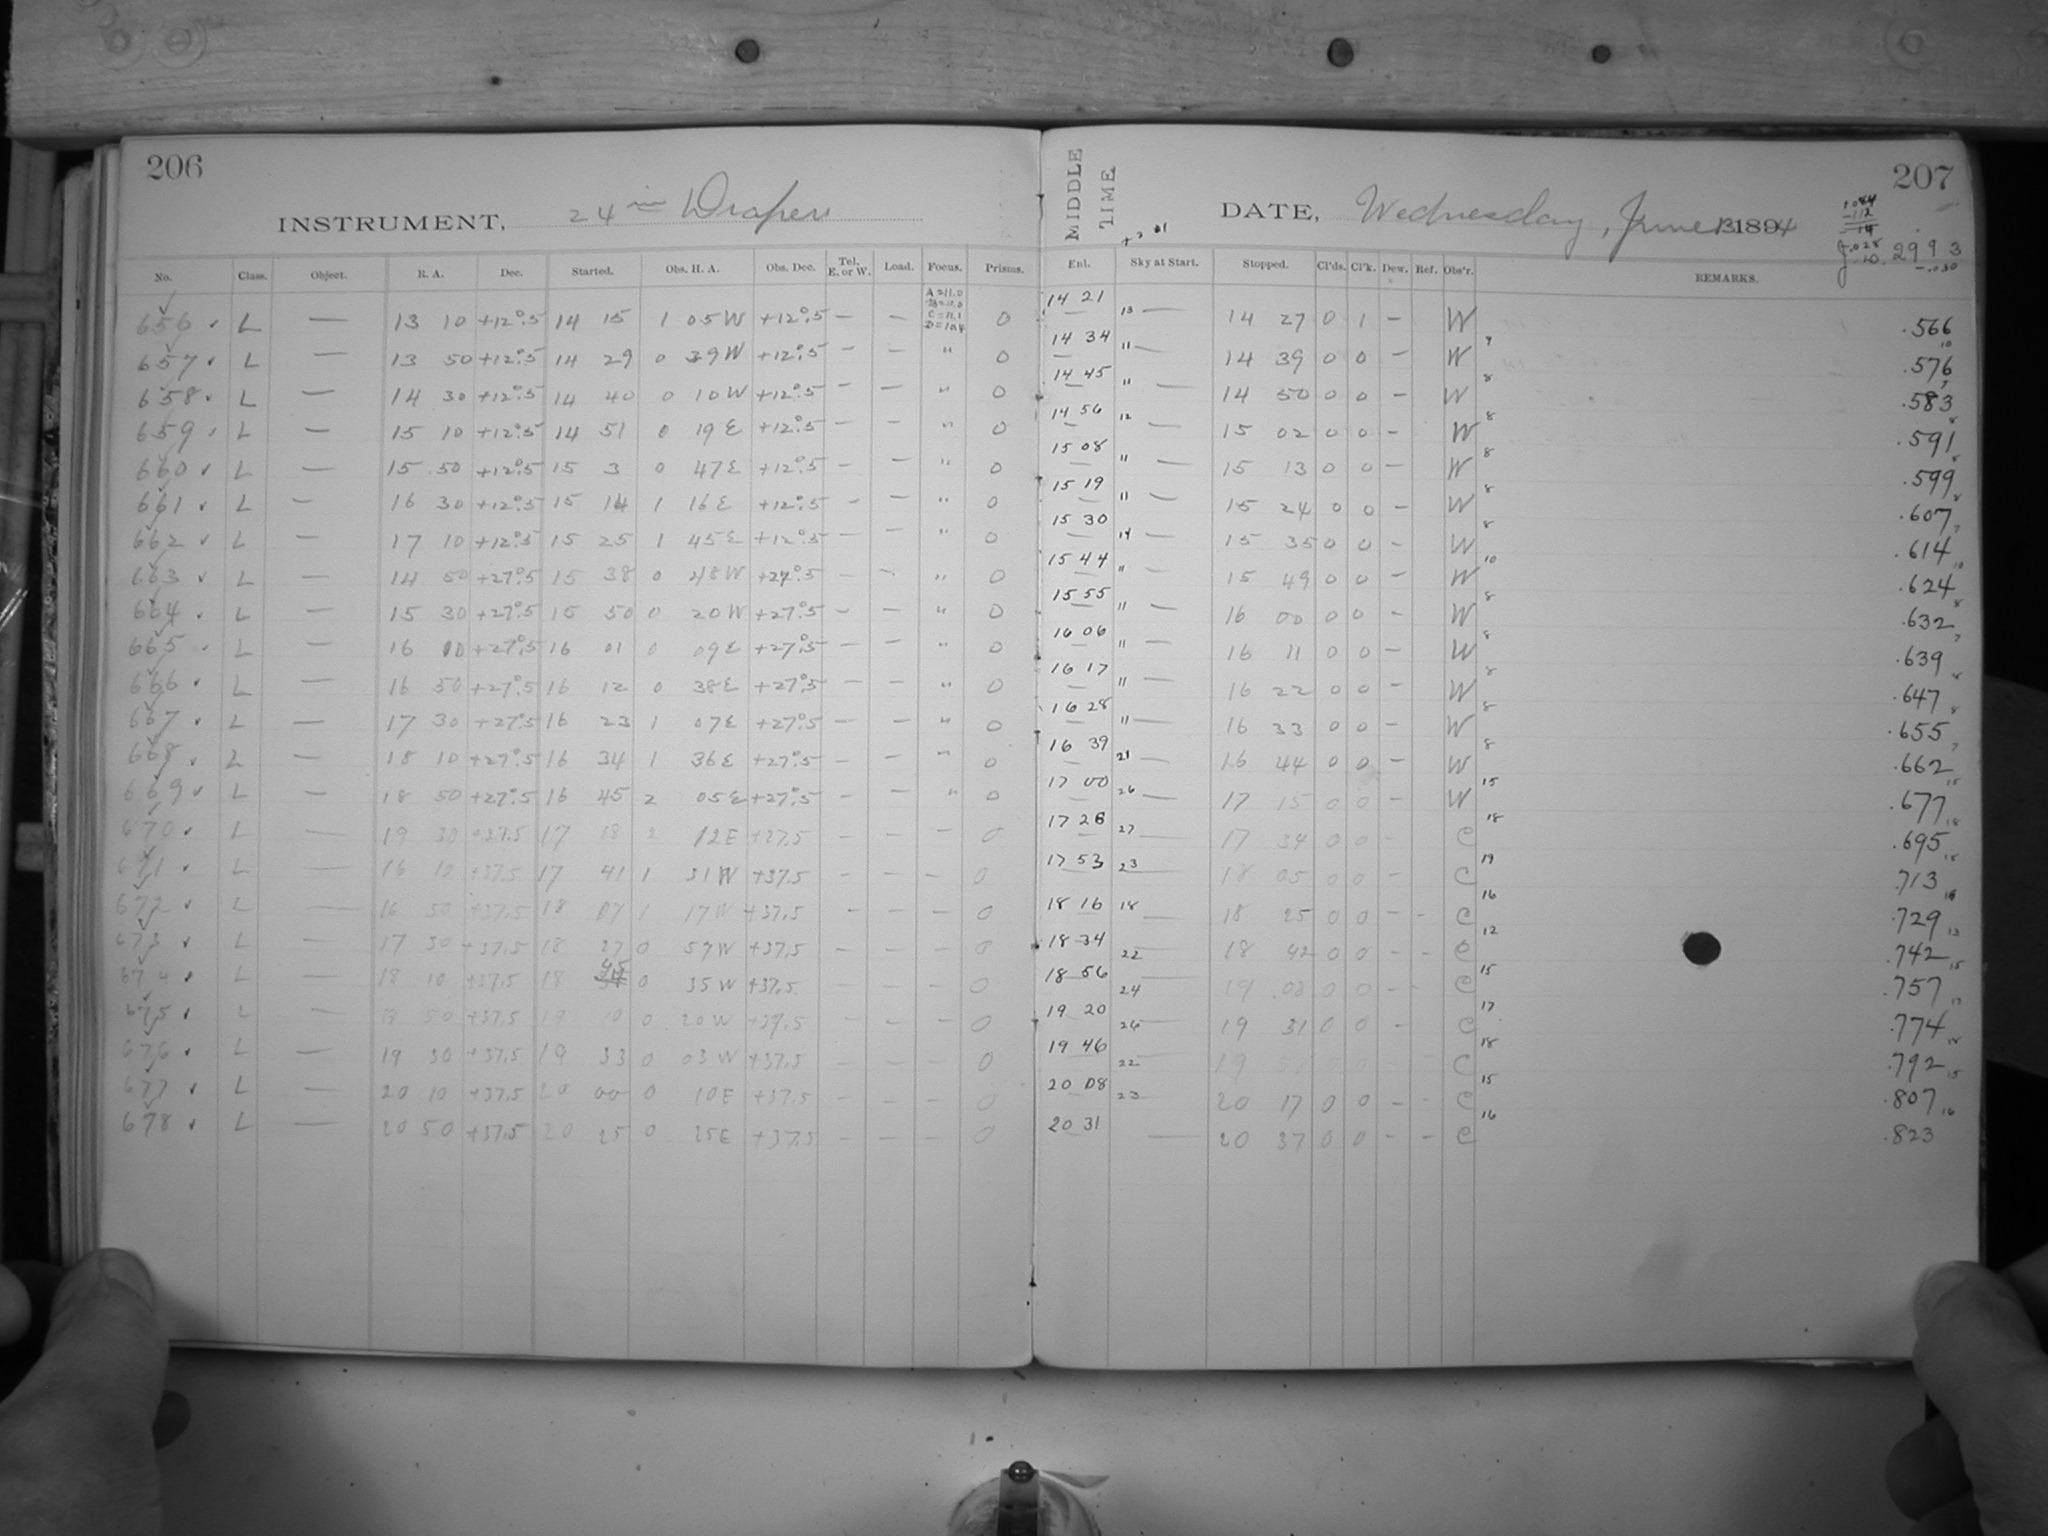 206
INSTRUMENT, 24 in Draper
No. Class. Object. R. A. Dec. Started. Obs. H. A. Obs. Dec. Tel. E. or W. Load. Focus. Prisms.
A=11.0
C=11.1
656 ✓ L — 13 10 +12°.5 14 15 1 05 W +12°.5 — — 0
657 ✓ L — 13 50 +12°.5 14 29 0 39 W +12°.5 — — " 0
658 ✓ L — 14 30 +12°.5 14 40 0 10 W +12°.5 — — " 0
659 ✓ L — 15 10 +12°.5 14 51 0 19 E +12°.5 — — " 0
660 ✓ L — 15 50 +12°.5 15 3 0 47 E +12°.5 — — " 0
661 ✓ L — 16 30 +12°.5 15 14 1 16 E +12°.5 — — " 0
662 ✓ L — 17 10 +12°.5 15 25 1 45 E +12°.5 — " 0
663 ✓ L — 14 50 +27°.5 15 38 0 48 W +27°.5 — — " 0
664 ✓ L — 15 30 +27°.5 15 50 0 20 W +27°.5 — — " 0
665 ✓ L — 16 10 +27°.5 16 01 0 09 E +27°.5 — — " 0
666 ✓ L — 16 50 +27°.5 16 12 0 38 E +27°.5 — — " 0
667 ✓ L — 17 30 +27°.5 16 23 1 07 E +27°.5 — — " 0
668 ✓ L — 18 10 +27°.5 16 34 1 36 E +27°.5 — — " 0
669 ✓ L — 18 50 +27°.5 16 45 2 05 E +27°.5 — — " 0
670 ✓ L — 19 30 +27.5 17 18 2 12 E +27.5 — — — 0
671 ✓ L — 16 12 +37.5 17 41 1 31 W +37.5 — — — 0
672 ✓ L — 16 50 +37.5 18 07 1 17 W +37.5 — — — 0
673 ✓ L — 17 30 +37.5 18 27 0 57 W +37.5 — — — 0
674 ✓ L — 18 10 +37.5 18 45 0 35 W +37.5 — — — 0
675 ✓ L — 18 50 +37.5 19 10 0 20 W +37.5 — — — 0
676 ✓ L — 19 30 +37.5 19 33 0 03 W +37.5 — — — 0
677 ✓ L — 20 10 +37.5 20 00 0 10 E +37.5 — — — 0
678 ✓ L — 20 50 +37.5 20 25 0 25 E +37.5 — — — 0
MIDDLE TIME
207
DATE, Wednesday, June 13 1894
2993
Enl. Sky at Start. Stopped. Cl'ds. Cl'k. Dew. Ref. Obs'r. REMARKS.
14 21 13 — 14 27 0 1 — W .566
14 34 " — 14 39 0 0 — W .576
14 45 " — 14 50 0 0 — W .583
14 56 12 — 15 02 0 0 — W .591
15 08 " — 15 13 0 0 — W .599
15 19 " — 15 24 0 0 — W .607
15 30 14 — 15 35 0 0 — W .614
15 44 " — 15 49 0 0 — W .624
15 55 " — 16 00 0 0 — W .632
16 06 " — 16 11 0 0 — W .639
16 17 " — 16 22 0 0 — W .647
16 28 " — 16 33 0 0 — W .655
16 39 21 — 16 44 0 0 — W .662
17 00 26 — 17 15 0 0 — W .677
17 26 27 — 17 34 0 0 — C .695
17 53 23 — 18 05 0 0 — C .713
18 16 18 — 18 25 0 0 — - C .729
18 34 22 — 18 42 0 0 — - C .742
18 56 24 — 19 08 0 0 — - C .757
19 20 26 — 19 31 0 0 — C .774
19 46 22 — 19 0 0 — C .792
20 08 23 — 20 17 0 0 — - C .807
20 31 — 20 37 0 0 — - C .823